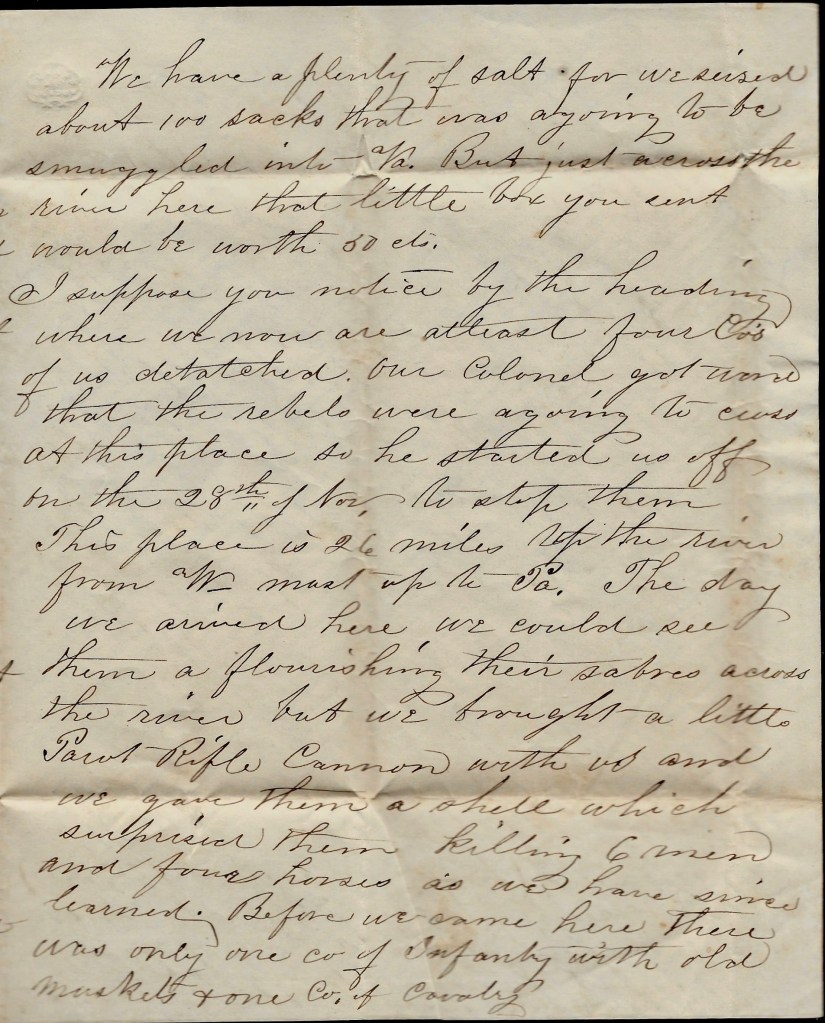 We have a plenty of salt for we seised
about 100 sacks that was agoing to be
smuggled into Va. But just across the
river here that little box you sent
would be worth 50 cts.
I suppose you notice by the heading
where we now are atleast four Co's
of us detatched. Our Colonel got word
that the rebels were agoing to cross
at this place so he started us off
on the 28th of Nov, to stop them
This place is 26 miles up the river
from W most up to Pa. The day
we arived here we could see
them a flourishing their sabres across
the river but we brought a little
Rifle Cannon with us and
we gave them a shell which
surprised them killing 6 men
and four horses as we have since
learned. Before we came here there
was only one co of Infantry with old
muskets & one Co. of Cavalry